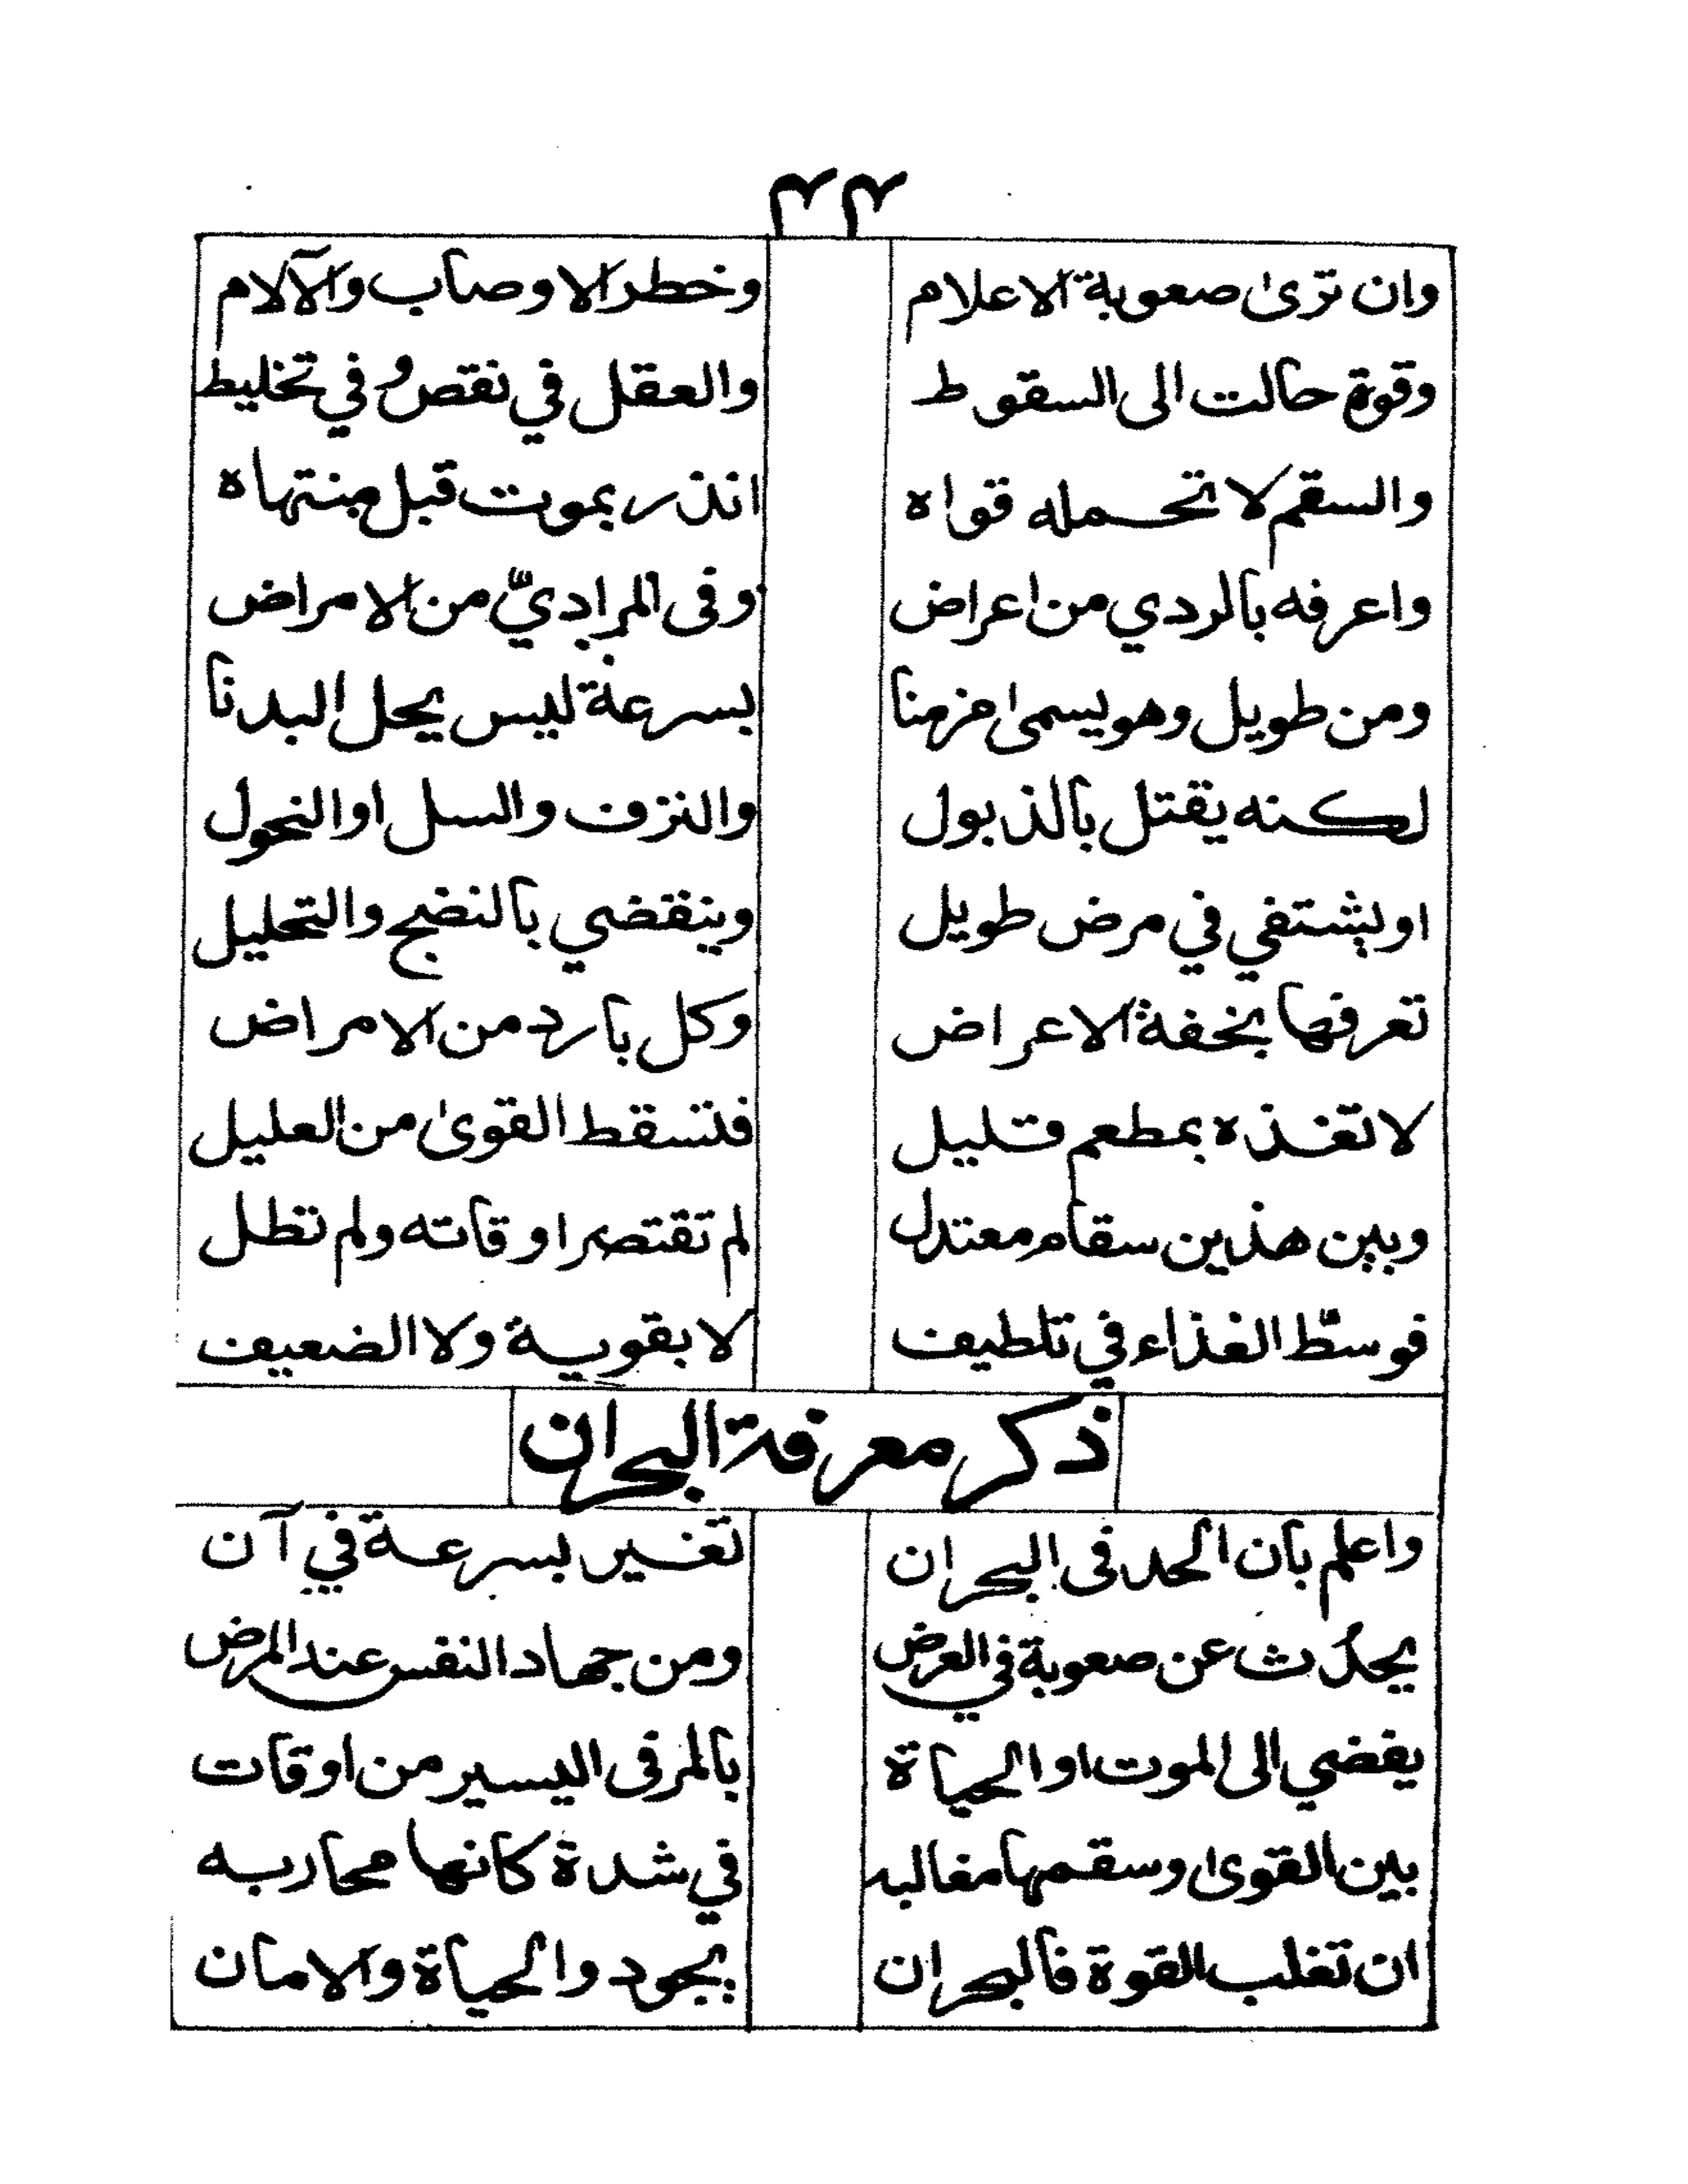 ٣٣
وان ترىٰ صعوبة الاعلام وخطر الاوصاب والآلام
وقوة حالت الى السقوط والعقل في نقص وفي تخليط
والسقم لا تحمله قواه انذر بموت قبل منتهاه
واعرفه بالردي من اعراض وفى المراديّ من الامراض
ومن طويل وهو يسمىٰ مزمنا بسرعة ليس يحل البدنا
لكنه يقتل بالذبول والنزف والسل او النحول
او يشتفي في مرض طويل وينقضي بالنضج والتحليل
تعرفها بخفة الاعراض وكل بارد من الامراض
لا تغذه بمطعم قليل فتسقط القوىٰ من العليل
وبين هذين سقام معتدل لم تقتصر اوقاته ولم تطل
فوسّط الغذاء في تلطيف لا بقوية ولا الضعيف
ذكر معرفة البحران
واعلم بان الحد فى البحران تغير بسرعة في آن
يحدُث عن صعوبة في العرض ومن جهاد النفس عند المرض
يفضي الى الموت او الحياة بالمرفى اليسير من اوقات
بين القوىٰ وسقمها مغالبه في شدة كانها محاربه
ان تغلب القوة فالبحران بجود والحياة والامان